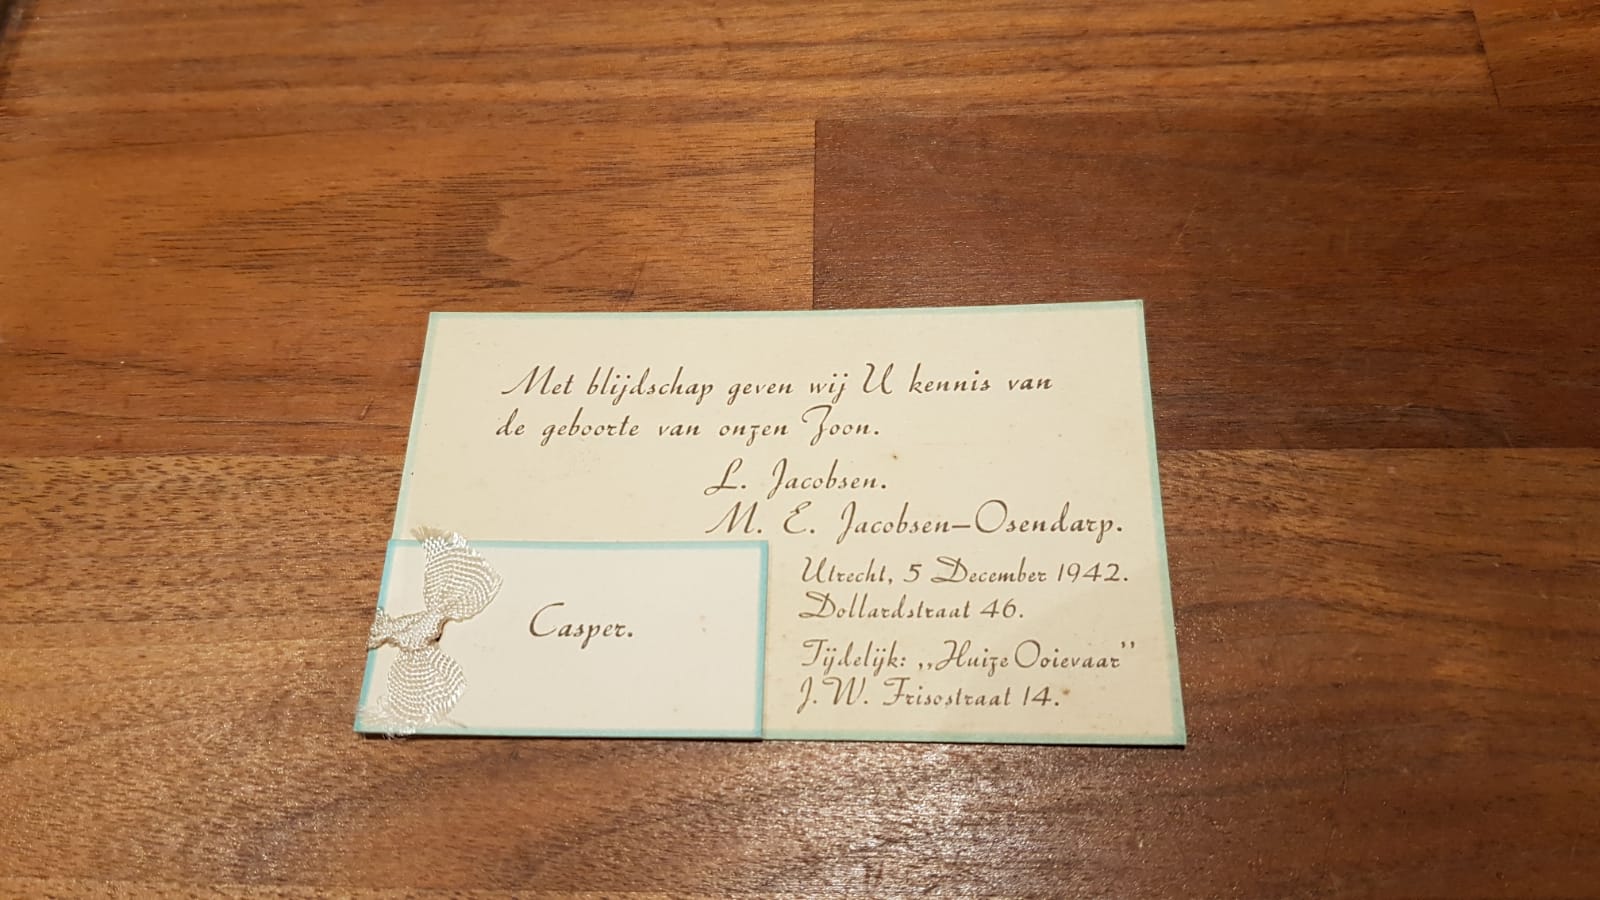 Met blijdschap geven wij U kennis van
de geboorte van onzen Zoon.
L. Jacobsen.
M. E. Jacobsen–Osendarp.
Casper.
Utrecht, 5 December 1942.
Dollardstraat 46.
Tijdelijk: „Huize Ooievaar”
J. W. Frisostraat 14.